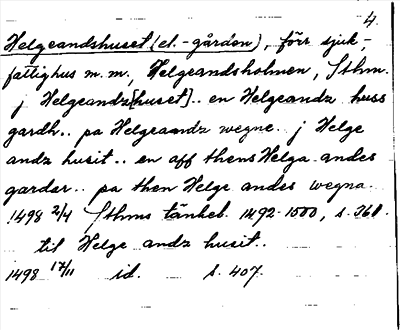 4.
Helgeandshuset (el. -gården), förr sjuk-,
fattighus m.m., Helgeandsholmen, Sthm.
j Helgeandz[huset].. en Helgeandz huss
gardh.. pa Helgeandz wegne. j Helge
andz husit.. en aff thens Helga andes
gardar.. pa then Helge andes wegna.
1498 2/4 Sthms tänkeb. 1492-1500, s. 361.
til Helge andz husit..
1498 17/11 id. s. 407.